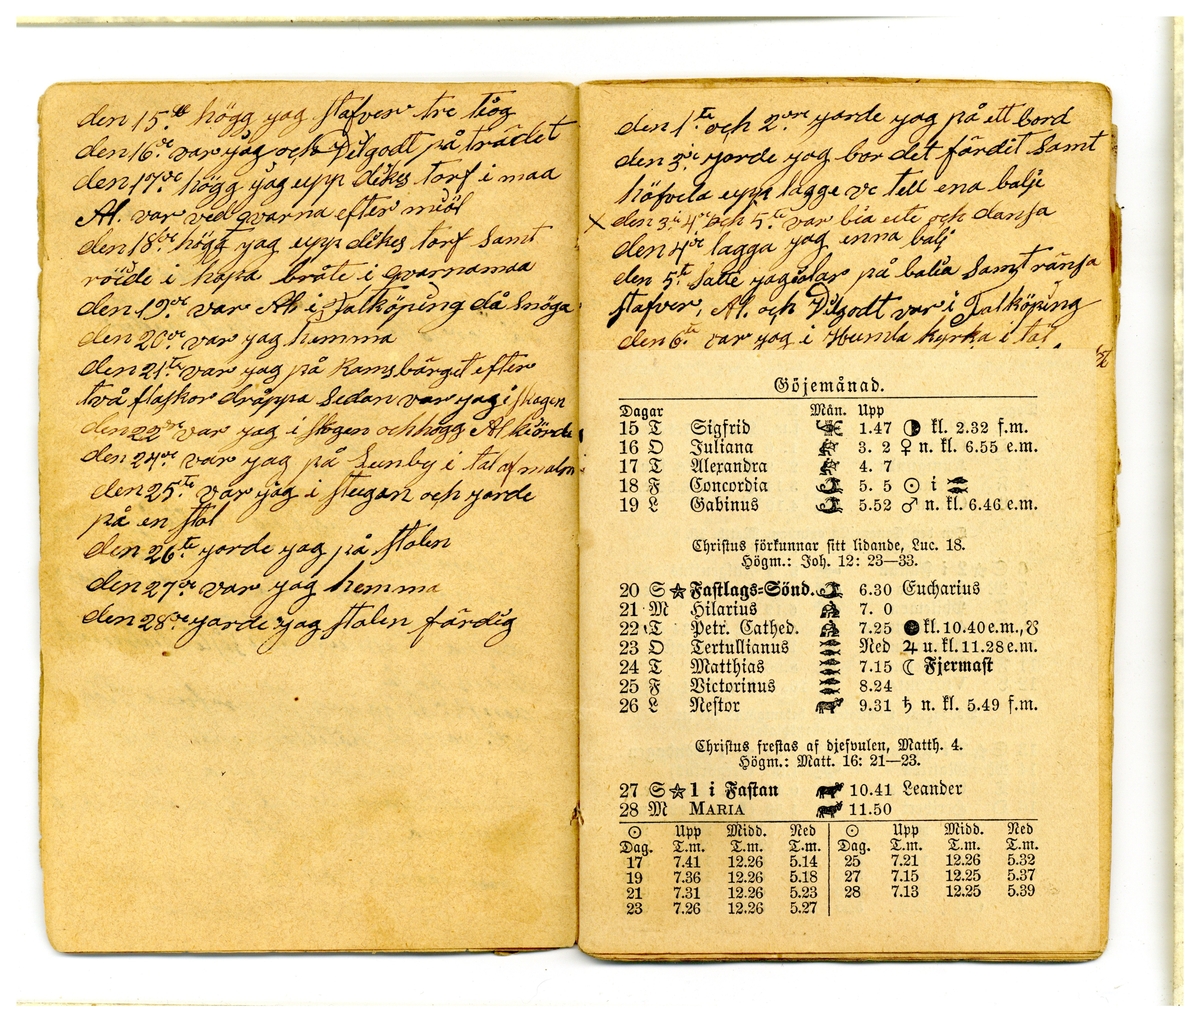 den 15de högg jag stafver tre tiog
den 16de var jag och Vilgodt på trädet
den 17de högg jag upp dikes torf i maa
Al. var ved qvarna efter miöl
den 18de högg jag upp dikes torf samt
röide i hopa bråte i qvarnamaa
den 19de var Al i Falköping då snöga
den 20de var jag hemma
den 21ta var jag på Ramsbärget efter
två flaskor dråppa sedan var jag i skogen
den 22dre var jag i skogen och högg Al kiörde
den 24de var jag på Lunby i tal af malm
den 25te var jag i stugan och gorde
på en stol
den 26te gorde jag på stolen
den 27de var jag hemma
den 28de gorde jag stolen färdig
den 1ta och 2dre gorde jag på ett bord
den 3ie gorde jag bor det färdit samt
höfvla upp lagge ve tell ena balje
x den 3ie 4de och 5te var bia ute och dansa
den 4de lagga jag enna balj
den 5te satte jag på balia samt ränsa
stafver, Al. och Vilgodt var i Falköping
den 6te var jag i Humla kyrka i tal.
Göjemånad.
Dagar Mån. Upp
15 T Sigfrid 1.47 ◑ kl. 2.32 f.m.
16 O Juliana 3. 2 ♀ n. kl. 6.55 e.m.
17 T Alexandra 4. 7
18 F Concordia 5. 5 ☉ i ♓
19 L Gabinus 5.52 ♂ n. kl. 6.46 e.m.
Christus förkunnar sitt lidande, Luc. 18.
Högm.: Joh. 12: 23—33.
20 S ☆ Fastlags=Sönd. 6.30 Eucharius
21 M Hilarius 7. 0
22 T Petr. Cathed. 7.25 ● kl. 10.40 e.m., ☋
23 O Tertullianus Ned ♃ u. kl. 11.28 e.m.
24 T Matthias 7.15 ☾ Fjermast
25 F Victorinus 8.24
26 L Nestor 9.31 ♄ n. kl. 5.49 f.m.
Christus frestas af djefvulen, Matth. 4.
Högm.: Matt. 16: 21—23.
27 S ☆ 1 i Fastan 10.41 Leander
28 M MARIA 11.50
☉ Upp Midd. Ned ☉ Upp Midd. Ned
Dag. T.m. T.m. T.m. Dag. T.m. T.m. T.m.
17 7.41 12.26 5.14 25 7.21 12.26 5.32
19 7.36 12.26 5.18 27 7.15 12.25 5.37
21 7.31 12.26 5.23 28 7.13 12.25 5.39
23 7.26 12.26 5.27